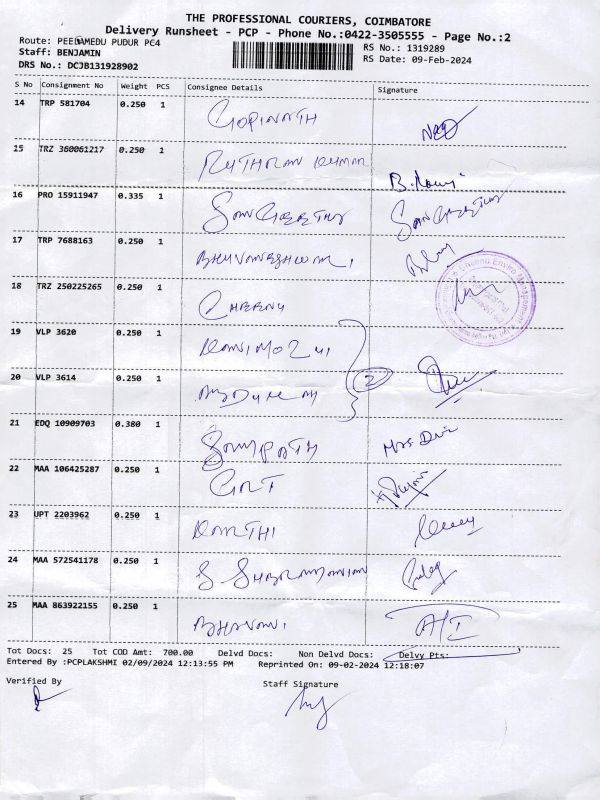 THE PROFESSIONAL COURIERS, COIMBATORE
Delivery Runsheet - PCP - Phone No.:0422-3505555 - Page No.:2
Route: PEEDAMEDU PUDUR PC4
RS No.: 1319289
Staff: BENJAMIN
RS Date: 09-Feb-2024
DRS No.: DCJB131928902
S No Consignment No Weight PCS Consignee Details Signature
14 TRP 581704 0.250 1 GOPINATH
15 TRZ 360061217 0.250 1 RUTHRAN KUMAR
16 PRO 15911947 0.335 1 SANGEETHA SANGEETHA
17 TRP 7688163 0.250 1 BHUVANESHWARI
18 TRZ 250225265 0.250 1
19 VLP 3620 0.250 1 KANIMOZHI
20 VLP 3614 0.250 1
2
21 EDQ 10909703 0.380 1 SAMPATH
22 MAA 106425287 0.250 1
23 UPT 2203962 0.250 1 KARTHI
24 MAA 572541178 0.250 1
25 MAA 863922155 0.250 1 BHAVANI
Tot Docs: 25 Tot COD Amt: 700.00 Delvd Docs: Non Delvd Docs: Delvy Pts:
Entered By :PCPLAKSHMI 02/09/2024 12:13:55 PM Reprinted On: 09-02-2024 12:18:07
Verified By
Staff Signature